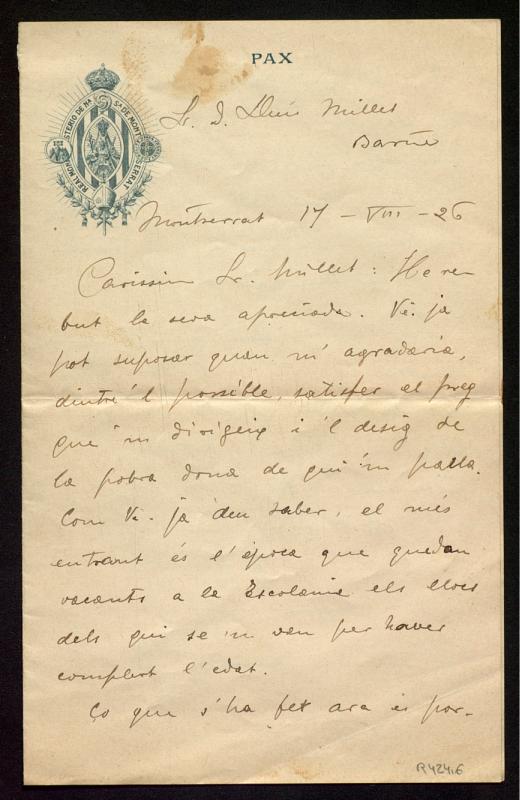 PAX
REAL MONASTERIO DE Nª Sª DE MONTSERRAT
Sr. D. Lluís Millet
Barna
Montserrat 17 - VIII - 26
Caríssim Sr. Millet: He re-
but la seva apreciada. Vè. ja
pot suposar quan m'agradaria,
dintre 'l possible, satisfer el preg
que 'm dirigeix i 'l desig de
la pobra dona de qui 'm parla.
Com Vè. ja deu saber, el més
entrant és l'època que quedan
vacants a la Escolania els llocs
dels qui se 'n van per haver
complert l'edat.
Ço que s'ha fet ara és por-
R424.6